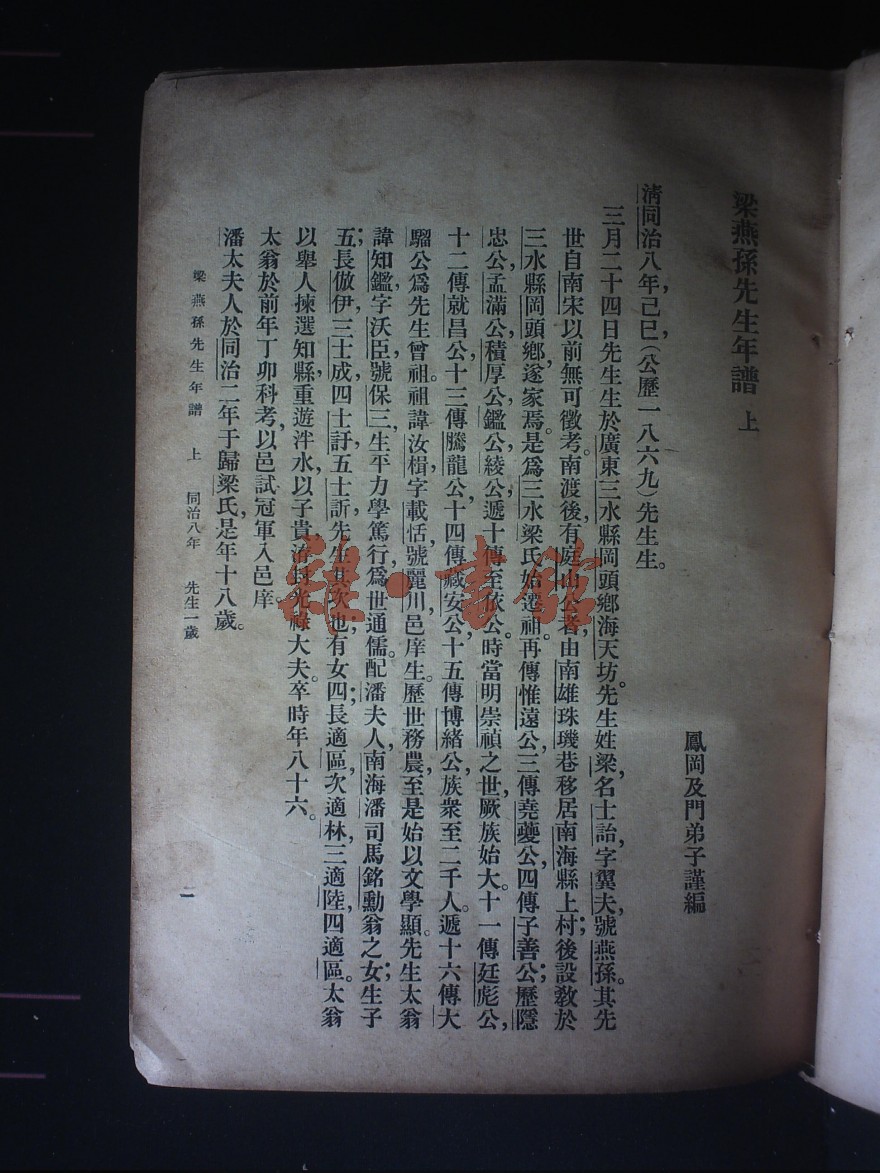 梁燕孫先生年譜 上
鳳岡及門弟子謹編
清同治八年，己巳（公歷一八六九）先生生。
三月二十四日先生生於廣東三水縣岡頭鄉海天坊。先生姓梁，名士詒，字翼夫，號燕孫。其先
世自南宋以前無可徵考。南渡後有庭山公者，由南雄珠璣巷移居南海縣上村；後設敎於
三水縣岡頭鄉，遂家焉。是爲三水梁氏始遷祖。再傳惟遠公，三傳堯夔公，四傳子善公；歷隱
忠公，孟滿公，積厚公，鑑公，綾公，遞十傳至依公。時當明崇禎之世，厥族始大。十一傳廷彪公，
十二傳就昌公，十三傳騰龍公，十四傳藏安公，十五傳博緒公，族衆至二千人。遞十六傳大
騮公，爲先生曾祖。祖諱汝楫，字載恬，號麗川，邑庠生。歷世務農，至是始以文學顯。先生太翁
諱知鑑，字沃臣，號保三，生平力學篤行，爲世通儒。配潘夫人，南海潘司馬銘勳翁之女；生子
五；長倣伊，三士成，四士訏，五士訢，先生其次也，有女四；長適區，次適林，三適陸，四適區。太翁
以舉人揀選知縣，重遊泮水，以子貴誥封光祿大夫。卒時年八十六。
太翁於前年丁卯科考，以邑試冠軍入邑庠。
潘太夫人於同治二年于歸梁氏，是年十八歲。
梁燕孫先生年譜 上 同治八年 先生一歲
一
雜·書館